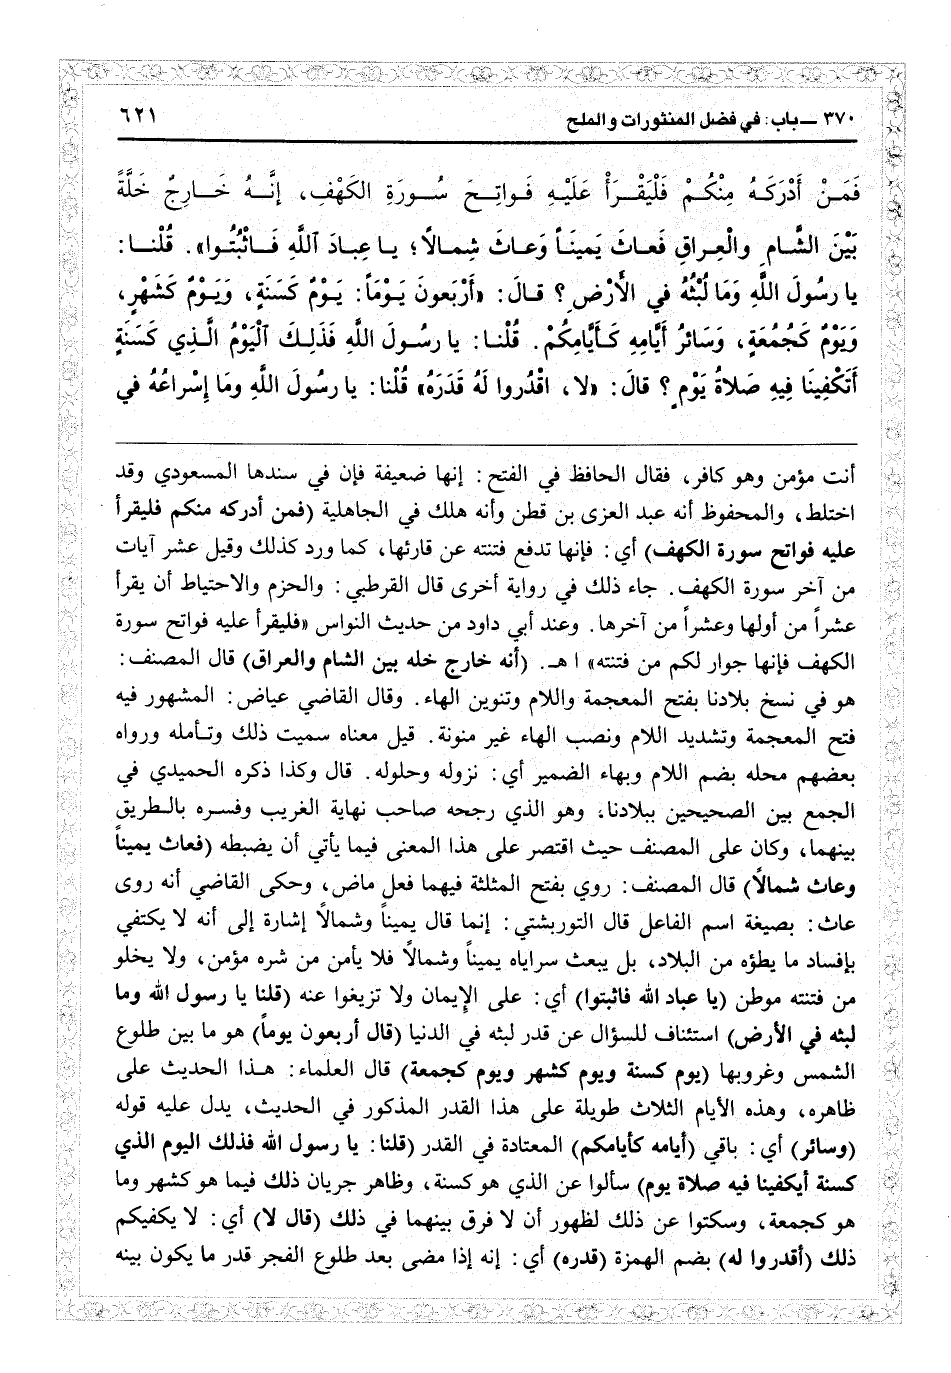 ٣٧٠ ــ باب: في فضل المنثورات والملح
٦٢١
فَمَنْ أَدْرَكَهُ مِنْكُمْ فَلْيَقْرَأْ عَلَيْهِ فَواتِحَ سُورَةِ الكَهْفِ، إِنَّهُ خَارِجٌ خَلَّةً
بَيْنَ الشَّامِ والْعِراقِ فَعاثَ يَمِيناً وَعاثَ شِمالاً؛ يا عِبادَ ٱللَّهِ فَاثْبُتُوا». قُلْنا:
يا رسُولَ اللَّهِ وَمَا لُبْثُهُ في الأَرْضِ؟ قالَ: «أَرْبَعونَ يَوْماً: يَوْمٌ كَسَنَةٍ، وَيَوْمٌ كَشَهْرٍ،
وَيَوْمٌ كَجُمُعَةٍ، وَسَائرُ أَيَّامِهِ كَأَيَّامِكُمْ. قُلْنا: يا رسُولَ اللَّهِ فَذَلِكَ ٱلْيَوْمُ الَّذِي كَسَنَةٍ
أَتَكْفِينَا فِيهِ صَلاةُ يَوْمٍ؟ قالَ: «لا، اقْدُروا لَهُ قَدَرَهُ» قُلْنا: يا رسُولَ اللَّهِ وَمَا إِسْراعُهُ في
أنت مؤمن وهو كافر، فقال الحافظ في الفتح: إنها ضعيفة فإن في سندها المسعودي وقد
اختلط، والمحفوظ أنه عبد العزى بن قطن وأنه هلك في الجاهلية (فمن أدركه منكم فليقرأ
عليه فواتح سورة الكهف) أي: فإنها تدفع فتنته عن قارئها، كما ورد كذلك وقيل عشر آيات
من آخر سورة الكهف. جاء ذلك في رواية أخرى قال القرطبي: والحزم والاحتياط أن يقرأ
عشراً من أولها وعشراً من آخرها. وعند أبي داود من حديث النواس «فليقرأ عليه فواتح سورة
الكهف فإنها جوار لكم من فتنته» ا هـ. (أنه خارج خله بين الشام والعراق) قال المصنف:
هو في نسخ بلادنا بفتح المعجمة واللام وتنوين الهاء. وقال القاضي عياض: المشهور فيه
فتح المعجمة وتشديد اللام ونصب الهاء غير منونة. قيل معناه سميت ذلك وتأمله ورواه
بعضهم محله بضم اللام وبهاء الضمير أي: نزوله وحلوله. قال وكذا ذكره الحميدي في
الجمع بين الصحيحين ببلادنا، وهو الذي رجحه صاحب نهاية الغريب وفسره بالطريق
بينهما، وكان على المصنف حيث اقتصر على هذا المعنى فيما يأتي أن يضبطه (فعاث يميناً
وعاث شمالاً) قال المصنف: روي بفتح المثلثة فيهما فعل ماض، وحكى القاضي أنه روى
عاث: بصيغة اسم الفاعل قال التوربشتي: إنما قال يميناً وشمالاً إشارة إلى أنه لا يكتفي
بإفساد ما يطؤه من البلاد، بل يبعث سراياه يميناً وشمالاً فلا يأمن من شره مؤمن، ولا يخلو
من فتنته موطن (يا عباد الله فاثبتوا) أي: على الإيمان ولا تزيغوا عنه (قلنا يا رسول الله وما
لبثه في الأرض) استئناف للسؤال عن قدر لبثه في الدنيا (قال أربعون يوماً) هو ما بين طلوع
الشمس وغروبها (يوم كسنة ويوم كشهر ويوم كجمعة) قال العلماء: هذا الحديث على
ظاهره، وهذه الأيام الثلاث طويلة على هذا القدر المذكور في الحديث، يدل عليه قوله
(وسائر) أي: باقي (أيامه كأيامكم) المعتادة في القدر (قلنا: يا رسول الله فذلك اليوم الذي
كسنة أيكفينا فيه صلاة يوم) سألوا عن الذي هو كسنة، وظاهر جريان ذلك فيما هو كشهر وما
هو كجمعة، وسكتوا عن ذلك لظهور أن لا فرق بينهما في ذلك (قال لا) أي: لا يكفيكم
ذلك (أقدروا له) بضم الهمزة (قدره) أي: إنه إذا مضى بعد طلوع الفجر قدر ما يكون بينه